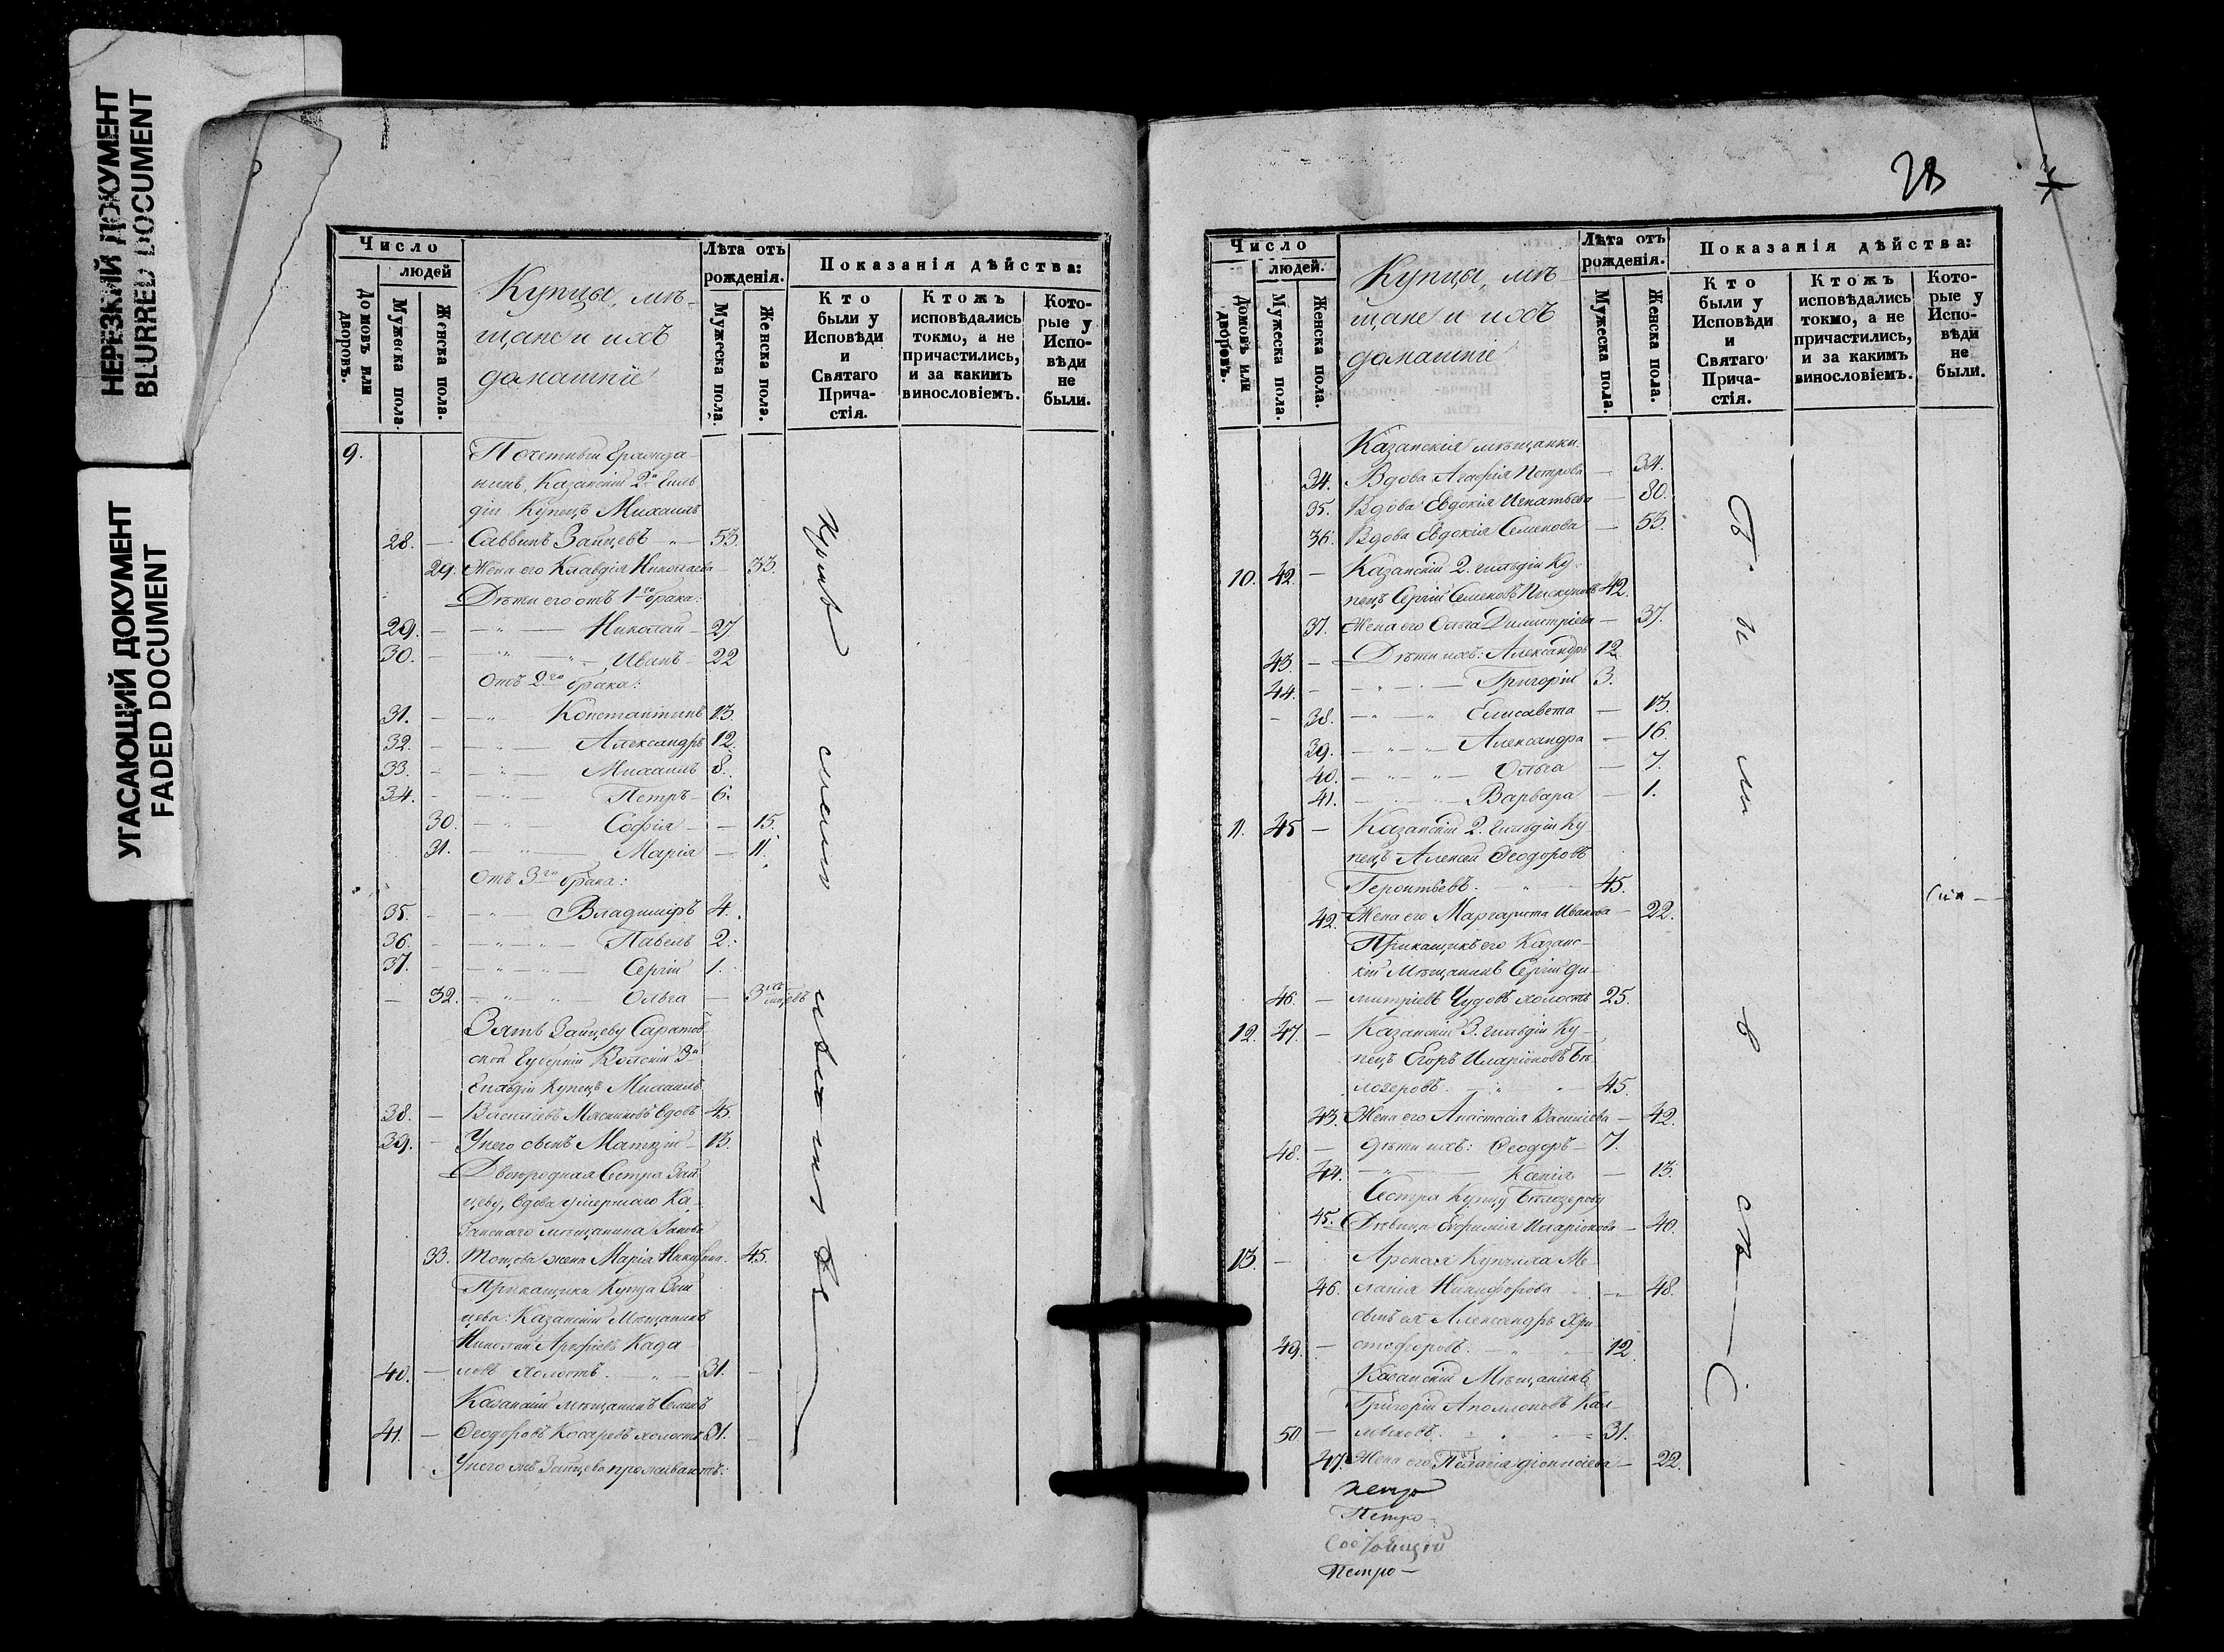 НЕРЕЗКИЙ ДОКУМЕНТ
BLURRED DOCUMENT
УГАСАЮЩИЙ ДОКУМЕНТ
FADED DOCUMENT
Число
людей
Домовъ или дворовъ.
Мужеска пола.
Женска пола.
Купцы, мѣ-
щане и ихъ
домашніе
Лѣта отъ
рожденія.
Мужеска пола.
Женска пола.
Показанія дѣйства:
Кто
были у
Исповѣди
и
Святаго
Прича-
стія.
Ктожъ
исповѣдались
токмо, а не
причастились,
и за какимъ
винословіемъ.
Кото-
рые у
Испо-
вѣди
не
были.
9. Почетный Гражда-
нинъ, Казанскій 2й Гиль
діи Купецъ Михаилъ
28. — Саввинъ Зайцевъ — 53.
29. Жена его Клавдія Николаева 33.
Дѣти его отъ 1го брака:
29. — — " — Николай — 27
30. — — " — Иванъ — 22
Отъ 2го брака:
31. — — " Константинъ 13.
32. — — " — Александръ 12.
33. — — " — Михаилъ 8.
34. — — " — Петръ — 6.
30. — " — Софія — — 15.
31. — " — Марія — 11.
Отъ 3го брака:
35. — — " — Владиміръ 4.
36. — — " — " — Павелъ 2.
37. — — " — " — Сергій 1.
— 32. — " — " — Ольга — 3
Зять Зайцеву Саратов
ской Губерніи Вольскій 3й
Гильдіи Купецъ Михаилъ
38. — Васильевъ Мясниковъ вдовъ 45.
39. — У него сынъ Матѳій — 13.
Двоюродная Сестра Зай
цеву, вдова умершаго Ка-
занскаго мѣщанина
33. жена Марія 45.
Прикащики Купца Зай
цева: Казанскій Мѣщанинъ
Николай Када
40. — ловъ холостъ. — " — 31. —
Казанскій мѣщанинъ Семенъ
41. — Ѳеодоровъ Косаревъ холостъ 31. —
У него жъ Зайцева проживаютъ:
28
Число
людей.
Домовъ или дворовъ.
Мужеска пола.
Женска пола.
Купцы, мѣ-
щане и ихъ
домашніе
Лѣта отъ
рожденія.
Мужеска пола.
Женска пола.
Показанія дѣйства:
Кто
были у
Исповѣди
и
Святаго
Прича-
стія.
Ктожъ
исповѣдались
токмо, а не
причастились,
и за какимъ
винословіемъ.
Кото-
рые у
Испо-
вѣди
не
были.
Казанскія мѣщанки.
34. Вдова Агафія Петрова — 34.
35. Вдова Евдокія Игнатьева — 80.
36. Вдова Евдокія Семенова — 53.
10. 42. — Казанскій 2. гильдіи Ку-
пецъ Сергій Семеновъ Пискуновъ 42.
37. Жена его Ольга Димитріева — 37.
43. — Дѣти ихъ: Александръ 12.
44. — — " — Григорій 3.
— 38. — " — " Елисавета — 13.
39. — " — " — Александра — 16.
40. — " — " — Ольга — 7.
41. — " — Варвара — 1.
11. 45 — Казанскій 2. гильдіи Ку
пецъ Алексѣй Ѳеодоровъ
Геронтьевъ. — " — 45.
42. Жена его Маргарита Иванова — 22.
Прикащикъ его Казанс-
кій Мѣщанинъ Сергій Ди-
46. — митріевъ Чудовъ холостъ 25.
12. 47. — Казанскій 3. гильдіи Ку-
пецъ Егоръ Иларіоновъ Бѣ
лозеровъ. — " — 45.
43. Жена его Анастасія Васильева — 42.
48. — Дѣти ихъ: Ѳеодоръ — 7.
44. — " — Ксенія — 13.
Сестра Купцу Бѣлозерову
45. Дѣвица Евфимія Иларіонова — 40.
13. — Арская Купчиха Ме-
46. ланія Никифорова — 48.
сынъ ея Александръ Хри
49. — стофоровъ. — " — 12.
Казанскій Мѣщанинъ
Григорій Аполлоновъ Кал
50 — мыковъ. 31.
47. Жена его Пелагія Діонисіева — 22.
Петро
Петро —
Петро —